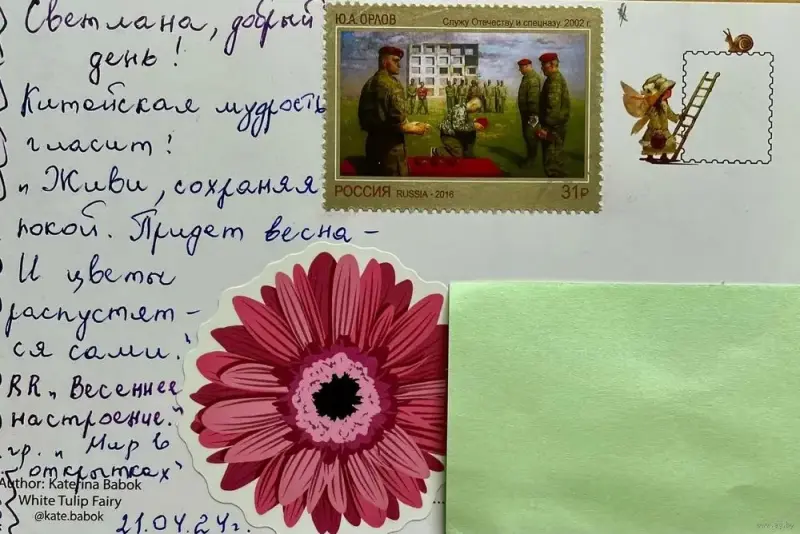 Светлана, добрый
день!
Китайская мудрость
гласит!
„Живи, сохраняя
покой. Придет весна –
И цветы
распустят –
ся сами."
RR „Весеннее
настроение."
гр. „Мир в
открытках"
21.04.24г.
Author: Katerina Babok
White Tulip Fairy
@kate.babok
Ю.А. ОРЛОВ
Служу Отечеству и спецназу. 2002 г.
РОССИЯ RUSSIA - 2016
31₽